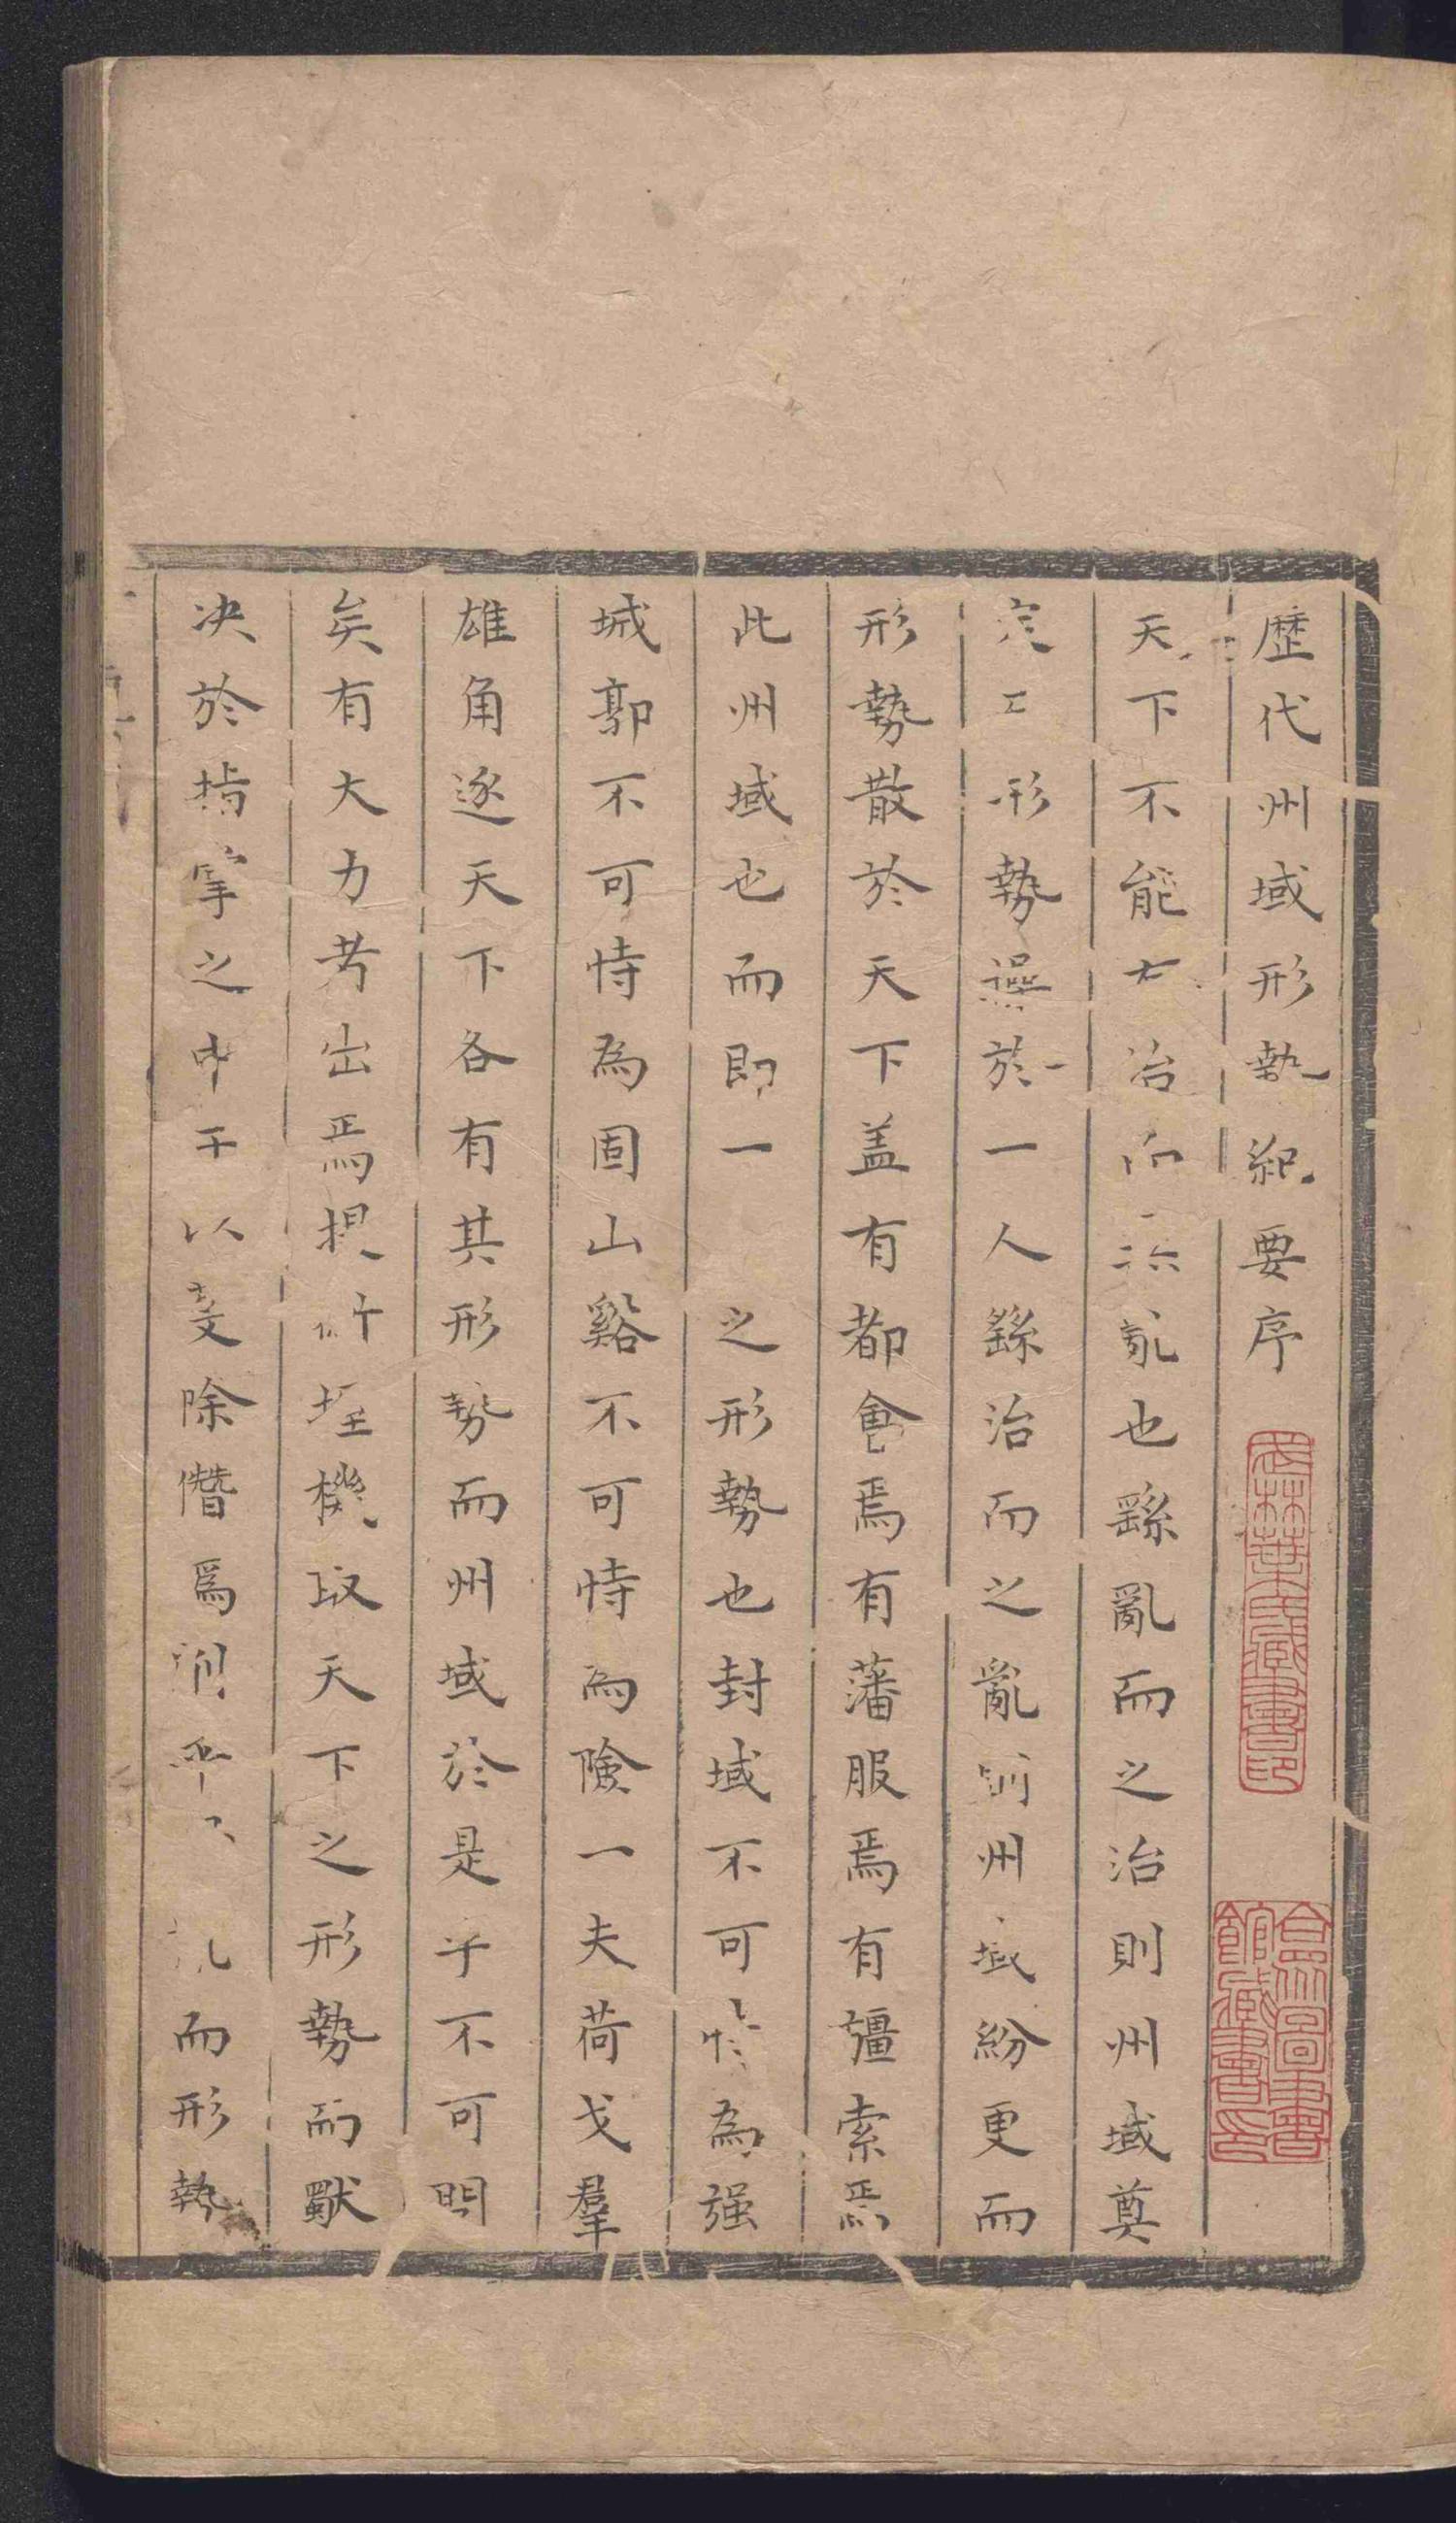 歷代州域形勢紀要序
武林葉氏藏書印
合眾圖書館藏書印
天下不能有治而無亂也繇亂而之治則州域奠
定而形勢操於一人繇治而之亂則州域紛更而
形勢散於天下盖有都會焉有藩服焉有疆索焉
此州域也而即一之形勢也封域不可恃為强
城郭不可恃為固山谿不可恃為險一夫荷戈羣
雄角逐天下各有其形勢而州域於是乎不可問
矣有大力者出焉提機取天下之形勢而獸
决於指掌之中于以芟除僭爲削平而形勢